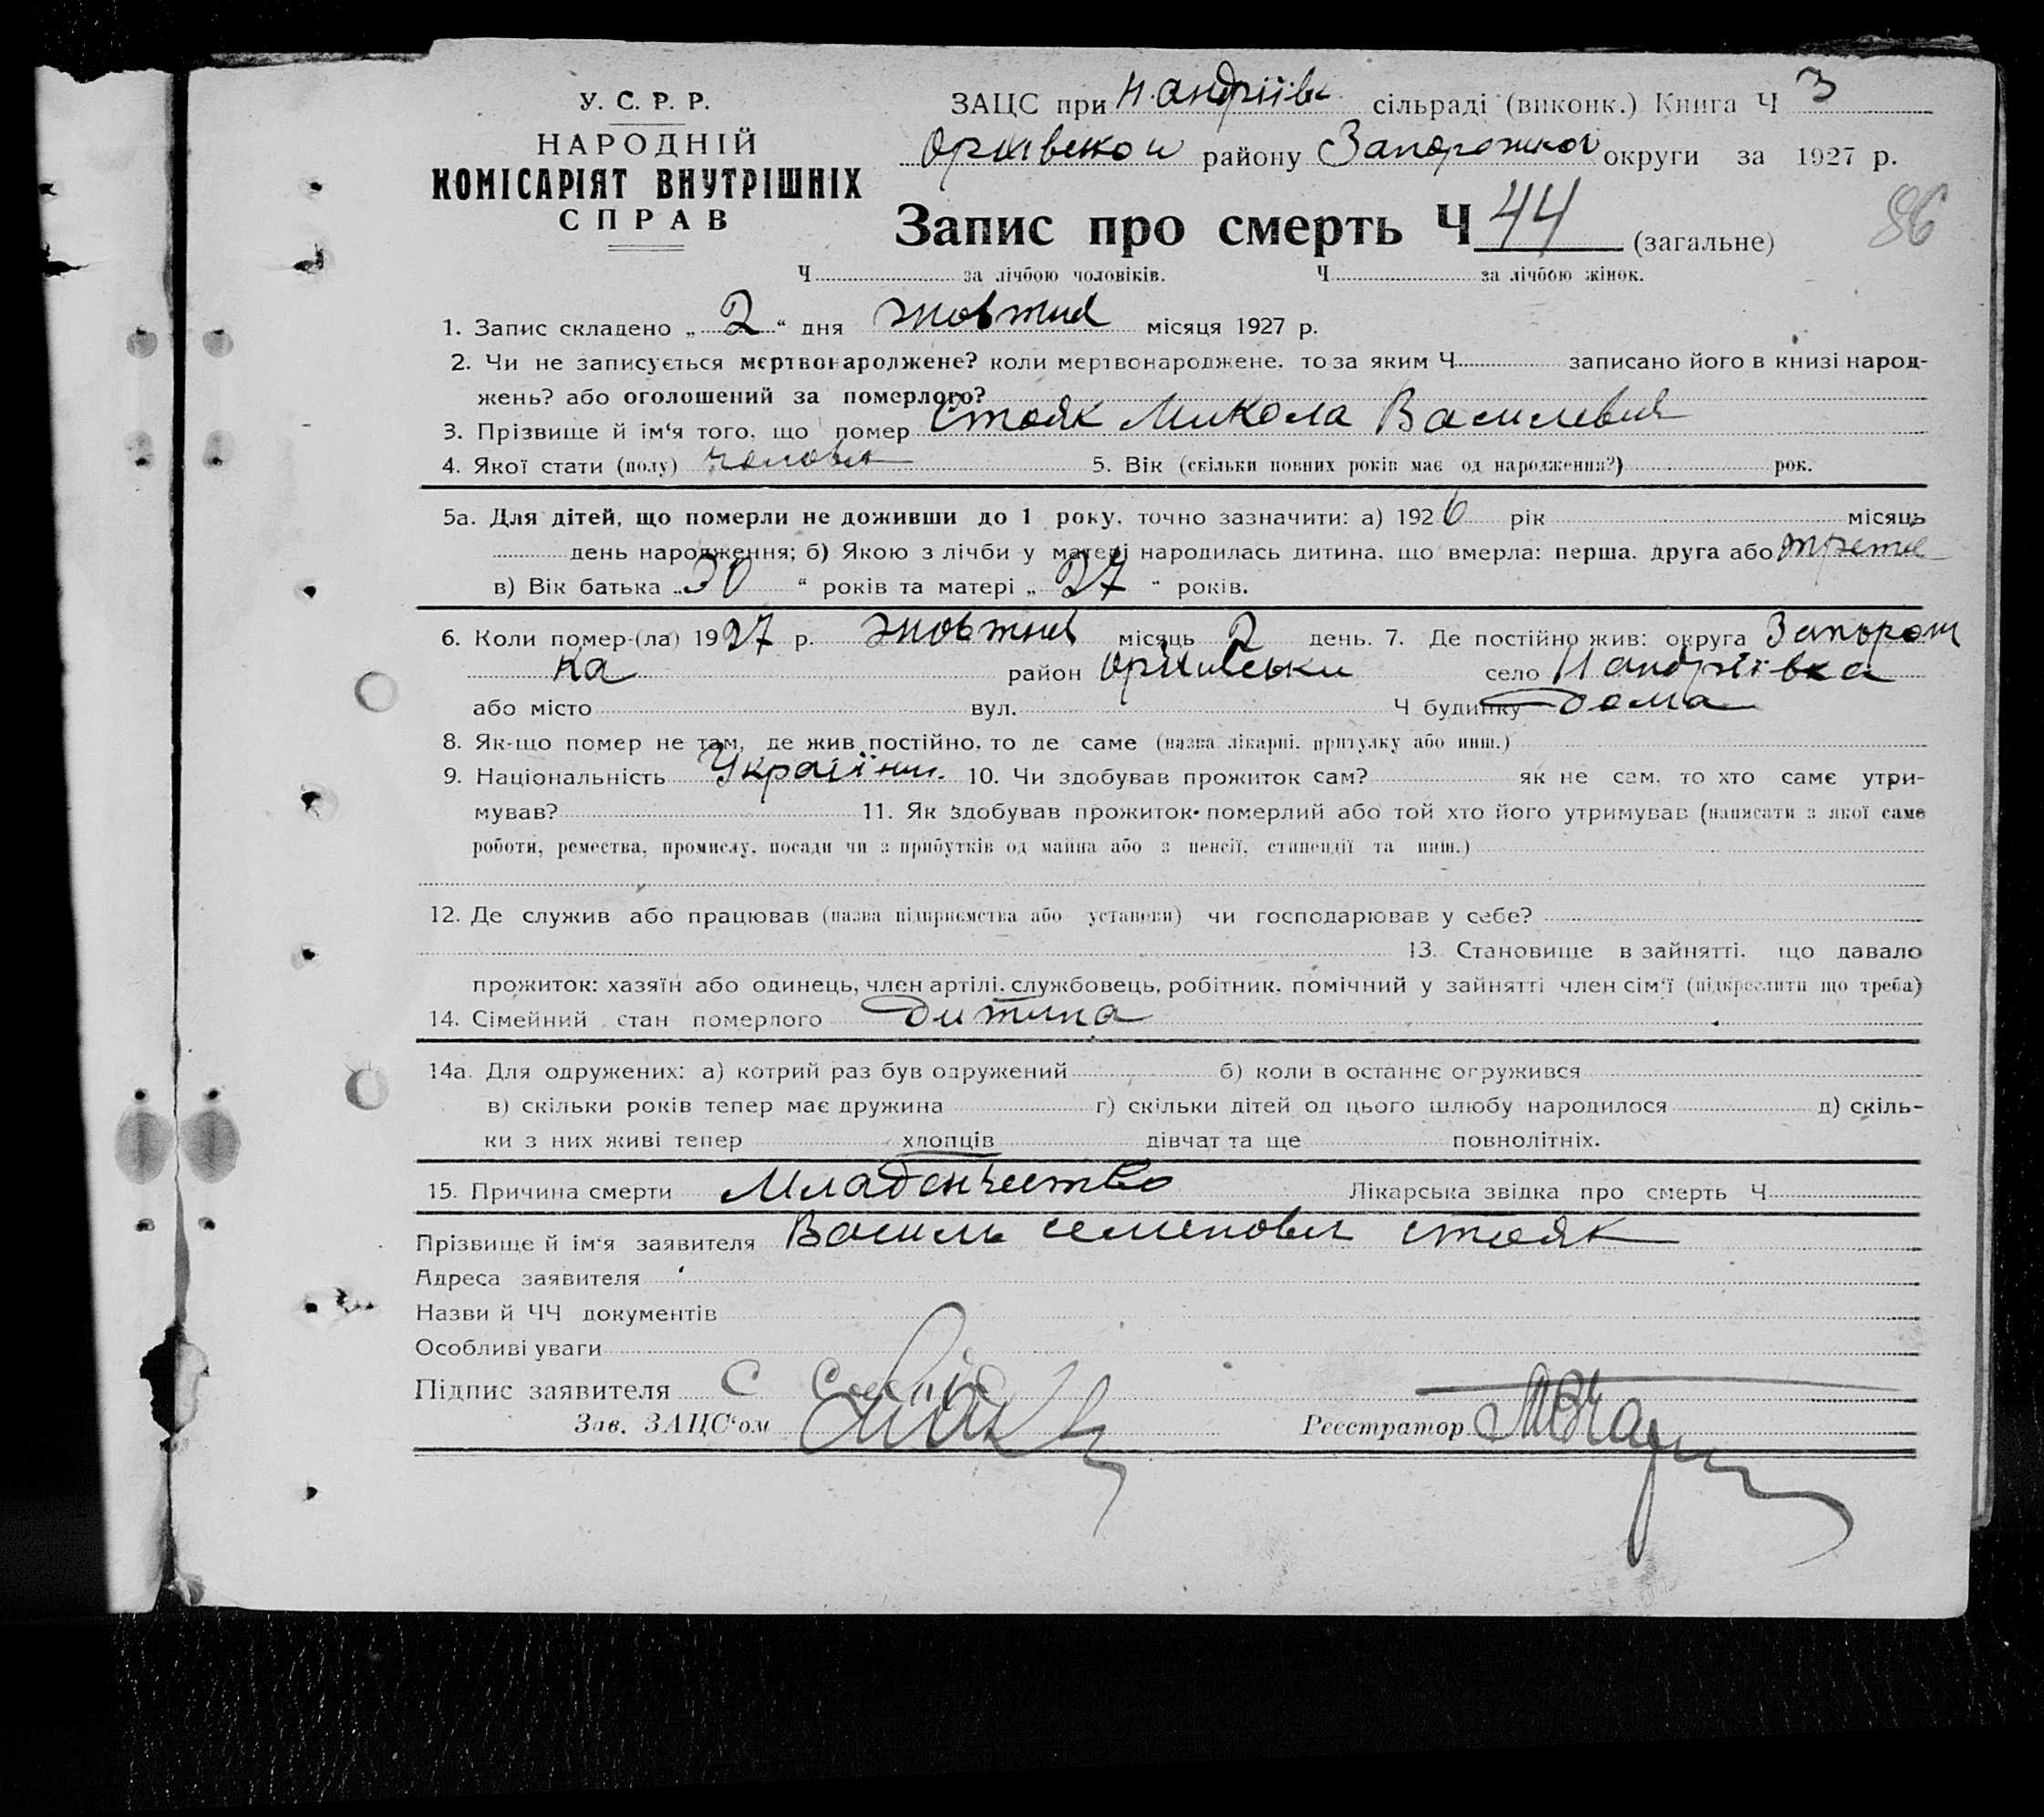 У. С. Р. Р.
НАРОДНІЙ
КОМІСАРІЯТ ВНУТРІШНІХ
СПРАВ
ЗАЦС при Н. Андріївк. сільраді (виконк.) Книга Ч 3
району округи за 1927 р.
Запис про смерть Ч 44 (загальне)
86
Ч за лічбою чоловіків. Ч за лічбою жінок.
1. Запис складено „ 2 “ дня жовтня місяця 1927 р.
2. Чи не записується мертвонароджене? коли мертвонароджене, то за яким Ч записано його в книзі народ-
жень? або оголошений за померлого?
3. Прізвище й ім‘я того, що помер Стояк Микола Василевич
4. Якої стати (полу) 5. Вік (скільки повних років має од народження?) рок.
5а. Для дітей, що померли не доживши до 1 року, точно зазначити: а) 1926 рік місяць
день народження; б) Якою з лічби у матері народилась дитина, що вмерла: перша, друга або третя
в) Вік батька „ 30 “ років та матері „ 27 “ років.
6. Коли помер-(ла) 1927 р. жовтня місяць 2 день. 7. Де постійно жив: округа Запорож
ка район село Н андріївка
або місто вул. Ч будинку дома
8. Як-що помер не там, де жив постійно, то де саме (назва лікарні, притулку або инш.)
9. Національність Україїни. 10. Чи здобував прожиток сам? як не сам, то хто саме утри-
мував? 11. Як здобував прожиток померлий або той хто його утримував (написати з якої саме
роботи, ремества, промислу, посади чи з прибутків од майна або з пенсії, стипендії та инш.)
12. Де служив або працював (назва підприємства або установи) чи господарював у себе?
13. Становище в зайнятті, що давало
прожиток: хазяїн або одинець, член артілі, службовець, робітник, помічний у зайнятті член сім‘ї (підкреслити що треба)
14. Сімейний стан померлого дитина
14а. Для одружених: а) котрий раз був одружений б) коли в останнє одружився
в) скільки років тепер має дружина г) скільки дітей од цього шлюбу народилося д) скіль-
ки з них живі тепер хлопців дівчат та ще повнолітніх.
15. Причина смерти Младенчество Лікарська звідка про смерть Ч
Прізвище й ім‘я заявителя Василь Семенович Стояк
Адреса заявителя
Назви й ЧЧ документів
Особливі уваги
Підпис заявителя
Зав. ЗАЦС‘ом Реєстратор